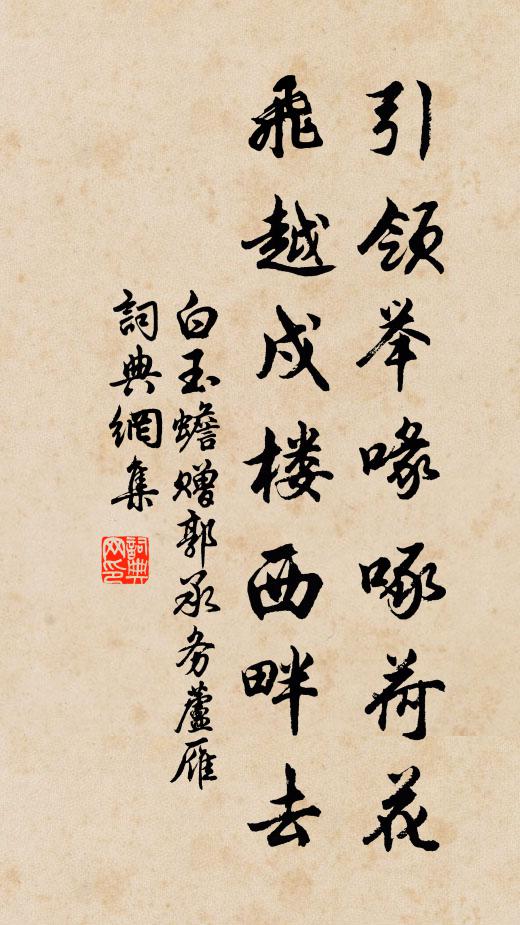 引领举喙啄荷花
飛越戍楼西畔去
白玉蟾赠郭承务蘆雁
詞典網集
詞典网印